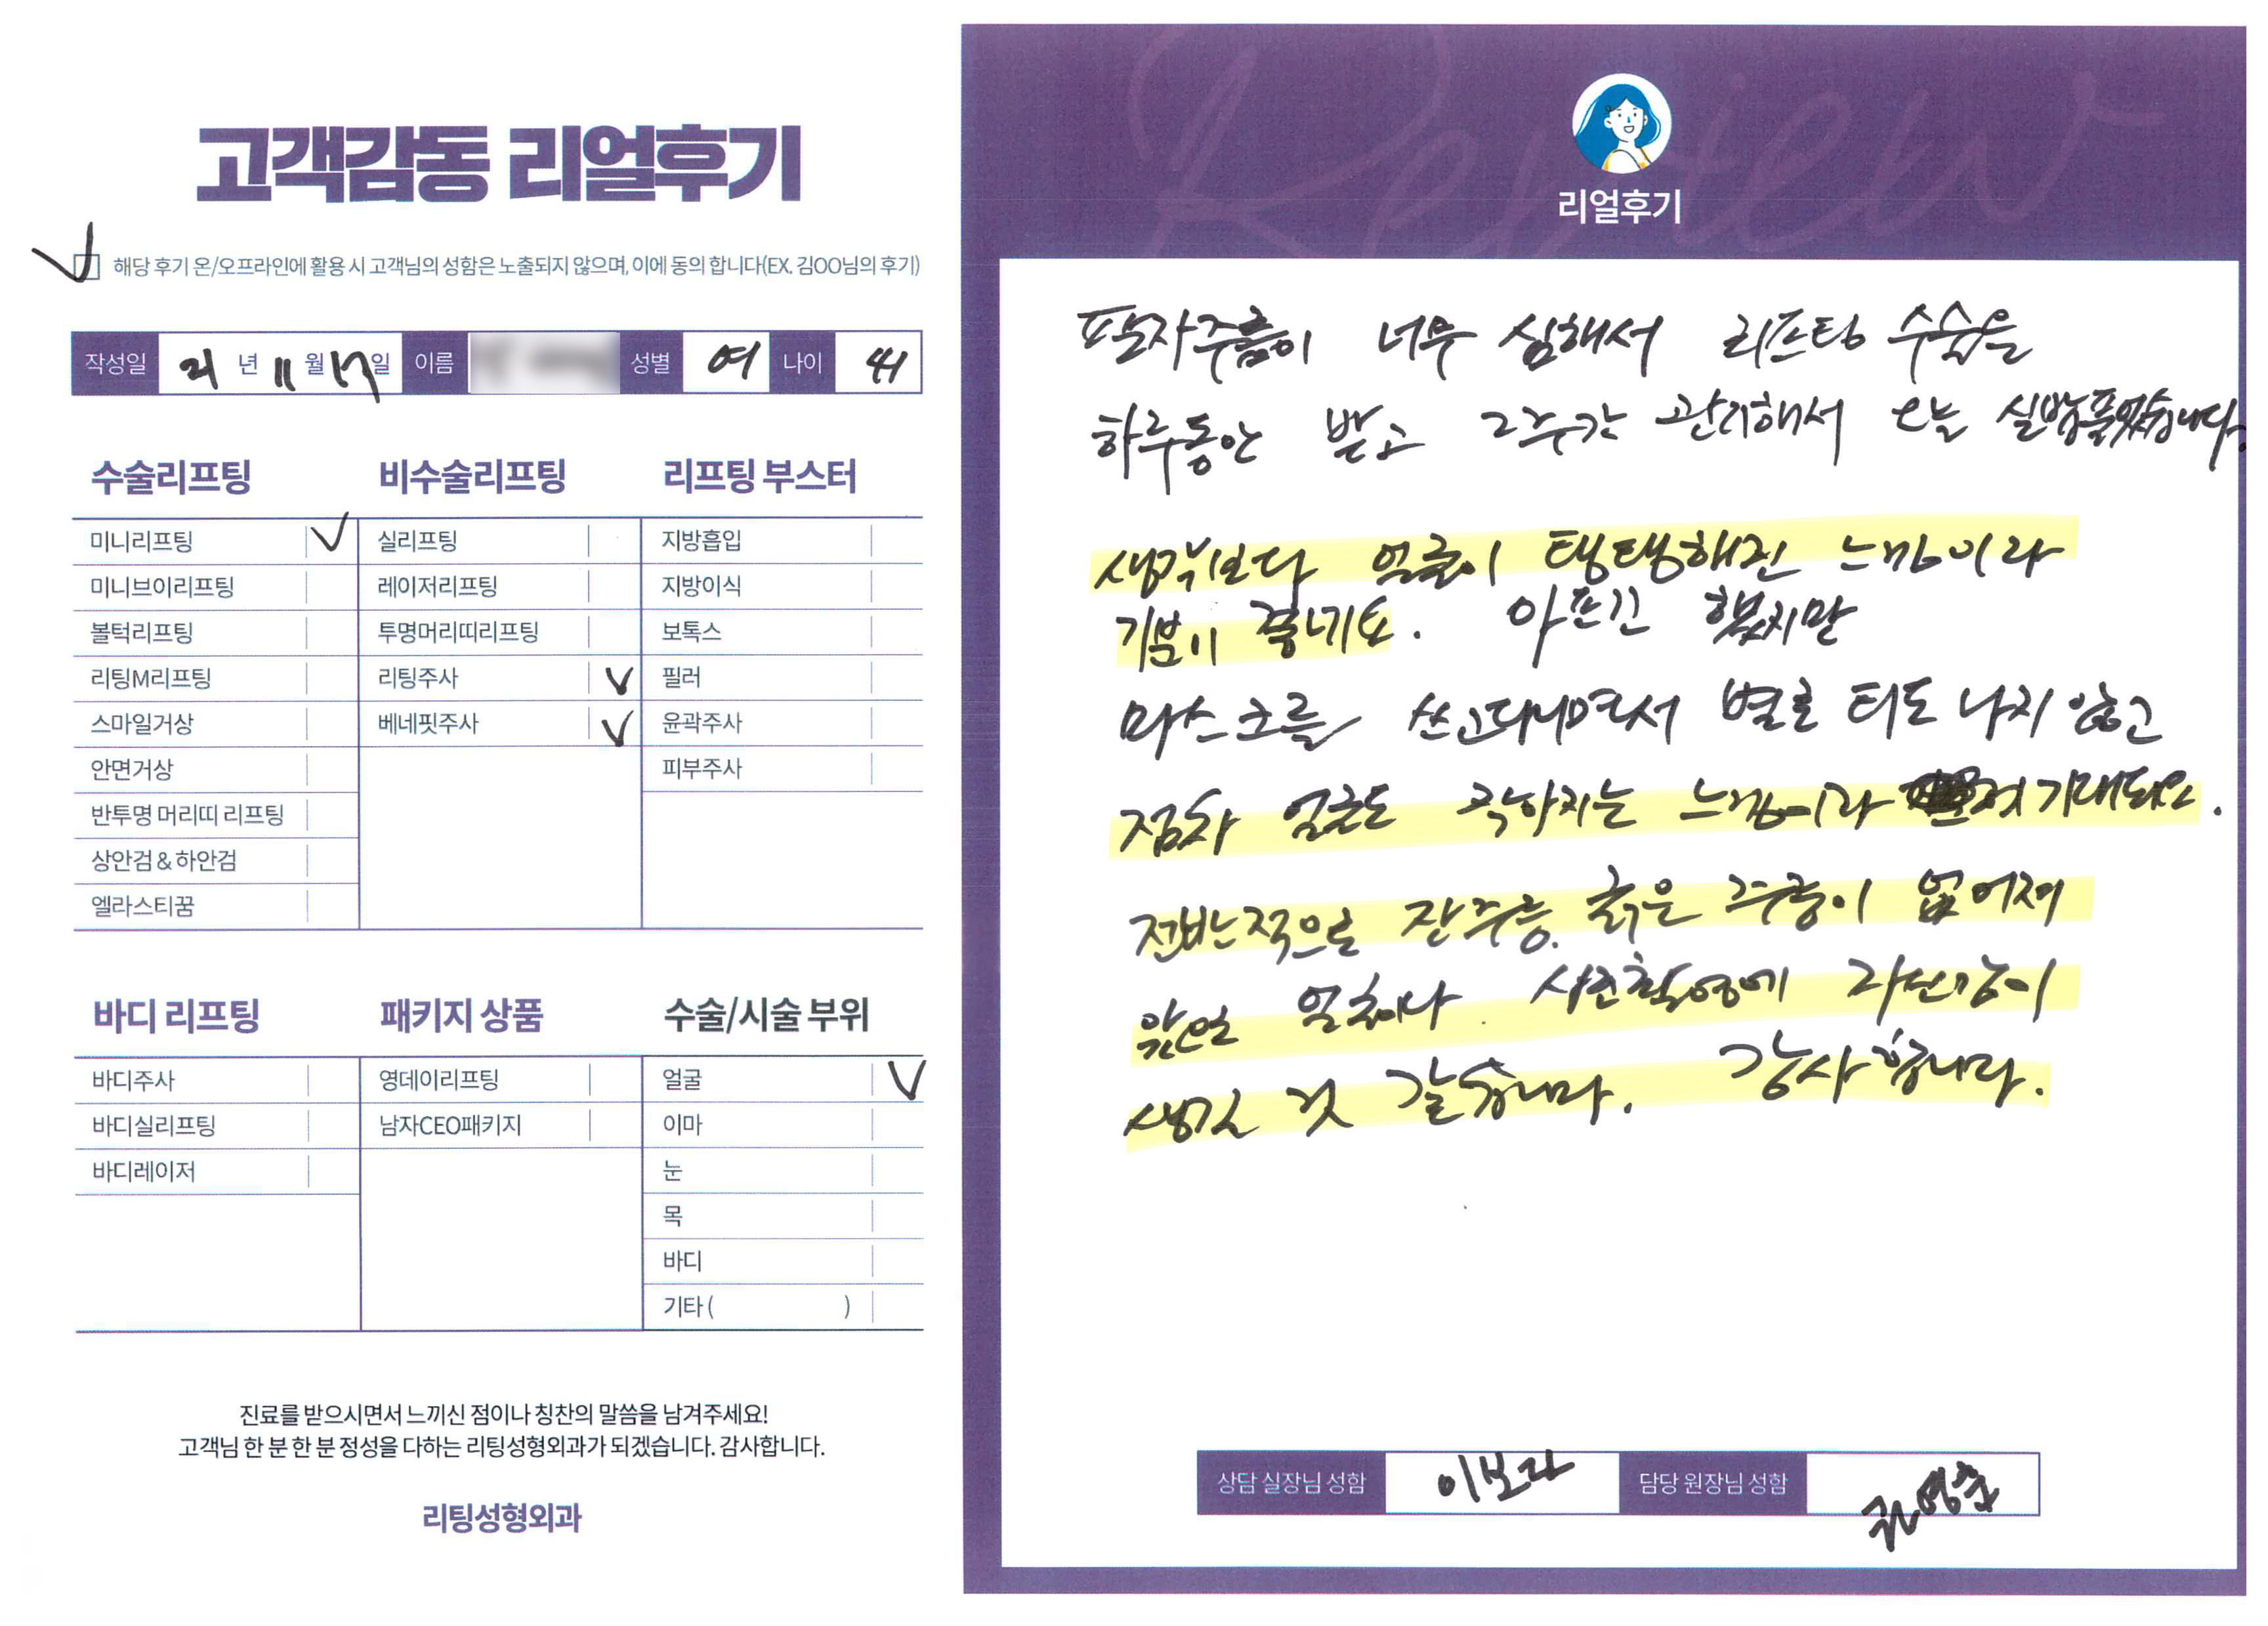 고객감동 리얼후기
해당 후기 온/오프라인에 활용 시 고객님의 성함은 노출되지 않으며, 이에 동의 합니다(EX. 김OO님의 후기)
작성일 21 년 11 월 17 일 이름 성별 여 나이 44
수술리프팅
미니리프팅 ✓
미니브이리프팅
볼턱리프팅
리팅M리프팅
스마일거상
안면거상
반투명 머리띠 리프팅
상안검 & 하안검
엘라스티꿈
비수술리프팅
실리프팅
레이저리프팅
투명머리띠리프팅
리팅주사 ✓
베네핏주사 ✓
리프팅 부스터
지방흡입
지방이식
보톡스
필러
윤곽주사
피부주사
바디 리프팅
바디주사
바디실리프팅
바디레이저
패키지 상품
영데이리프팅
남자CEO패키지
수술/시술 부위
얼굴 ✓
이마
눈
목
바디
기타 ( )
진료를 받으시면서 느끼신 점이나 칭찬의 말씀을 남겨주세요!
고객님 한 분 한 분 정성을 다하는 리팅성형외과가 되겠습니다. 감사합니다.
리팅성형외과
Review
리얼후기
팔자주름이 너무 심해서 리프팅 수술을
하루동안 받고 2주간 관리해서 오늘 실밥풀었습니다.
생각보다 얼굴이 탱탱해진 느낌이라
기분이 좋네요. 아프긴 했지만
마스크를 쓰고다니면서 별로 티도 나지 않고
점차 얼굴도 작아지는 느낌이라 기대되요.
전반적으로 잔주름. 굵은 주름이 없어져
앞으로 사진촬영에 자신감이
생길 것 같습니다. 감사합니다.
상담 실장님 성함 이보라 담당 원장님 성함